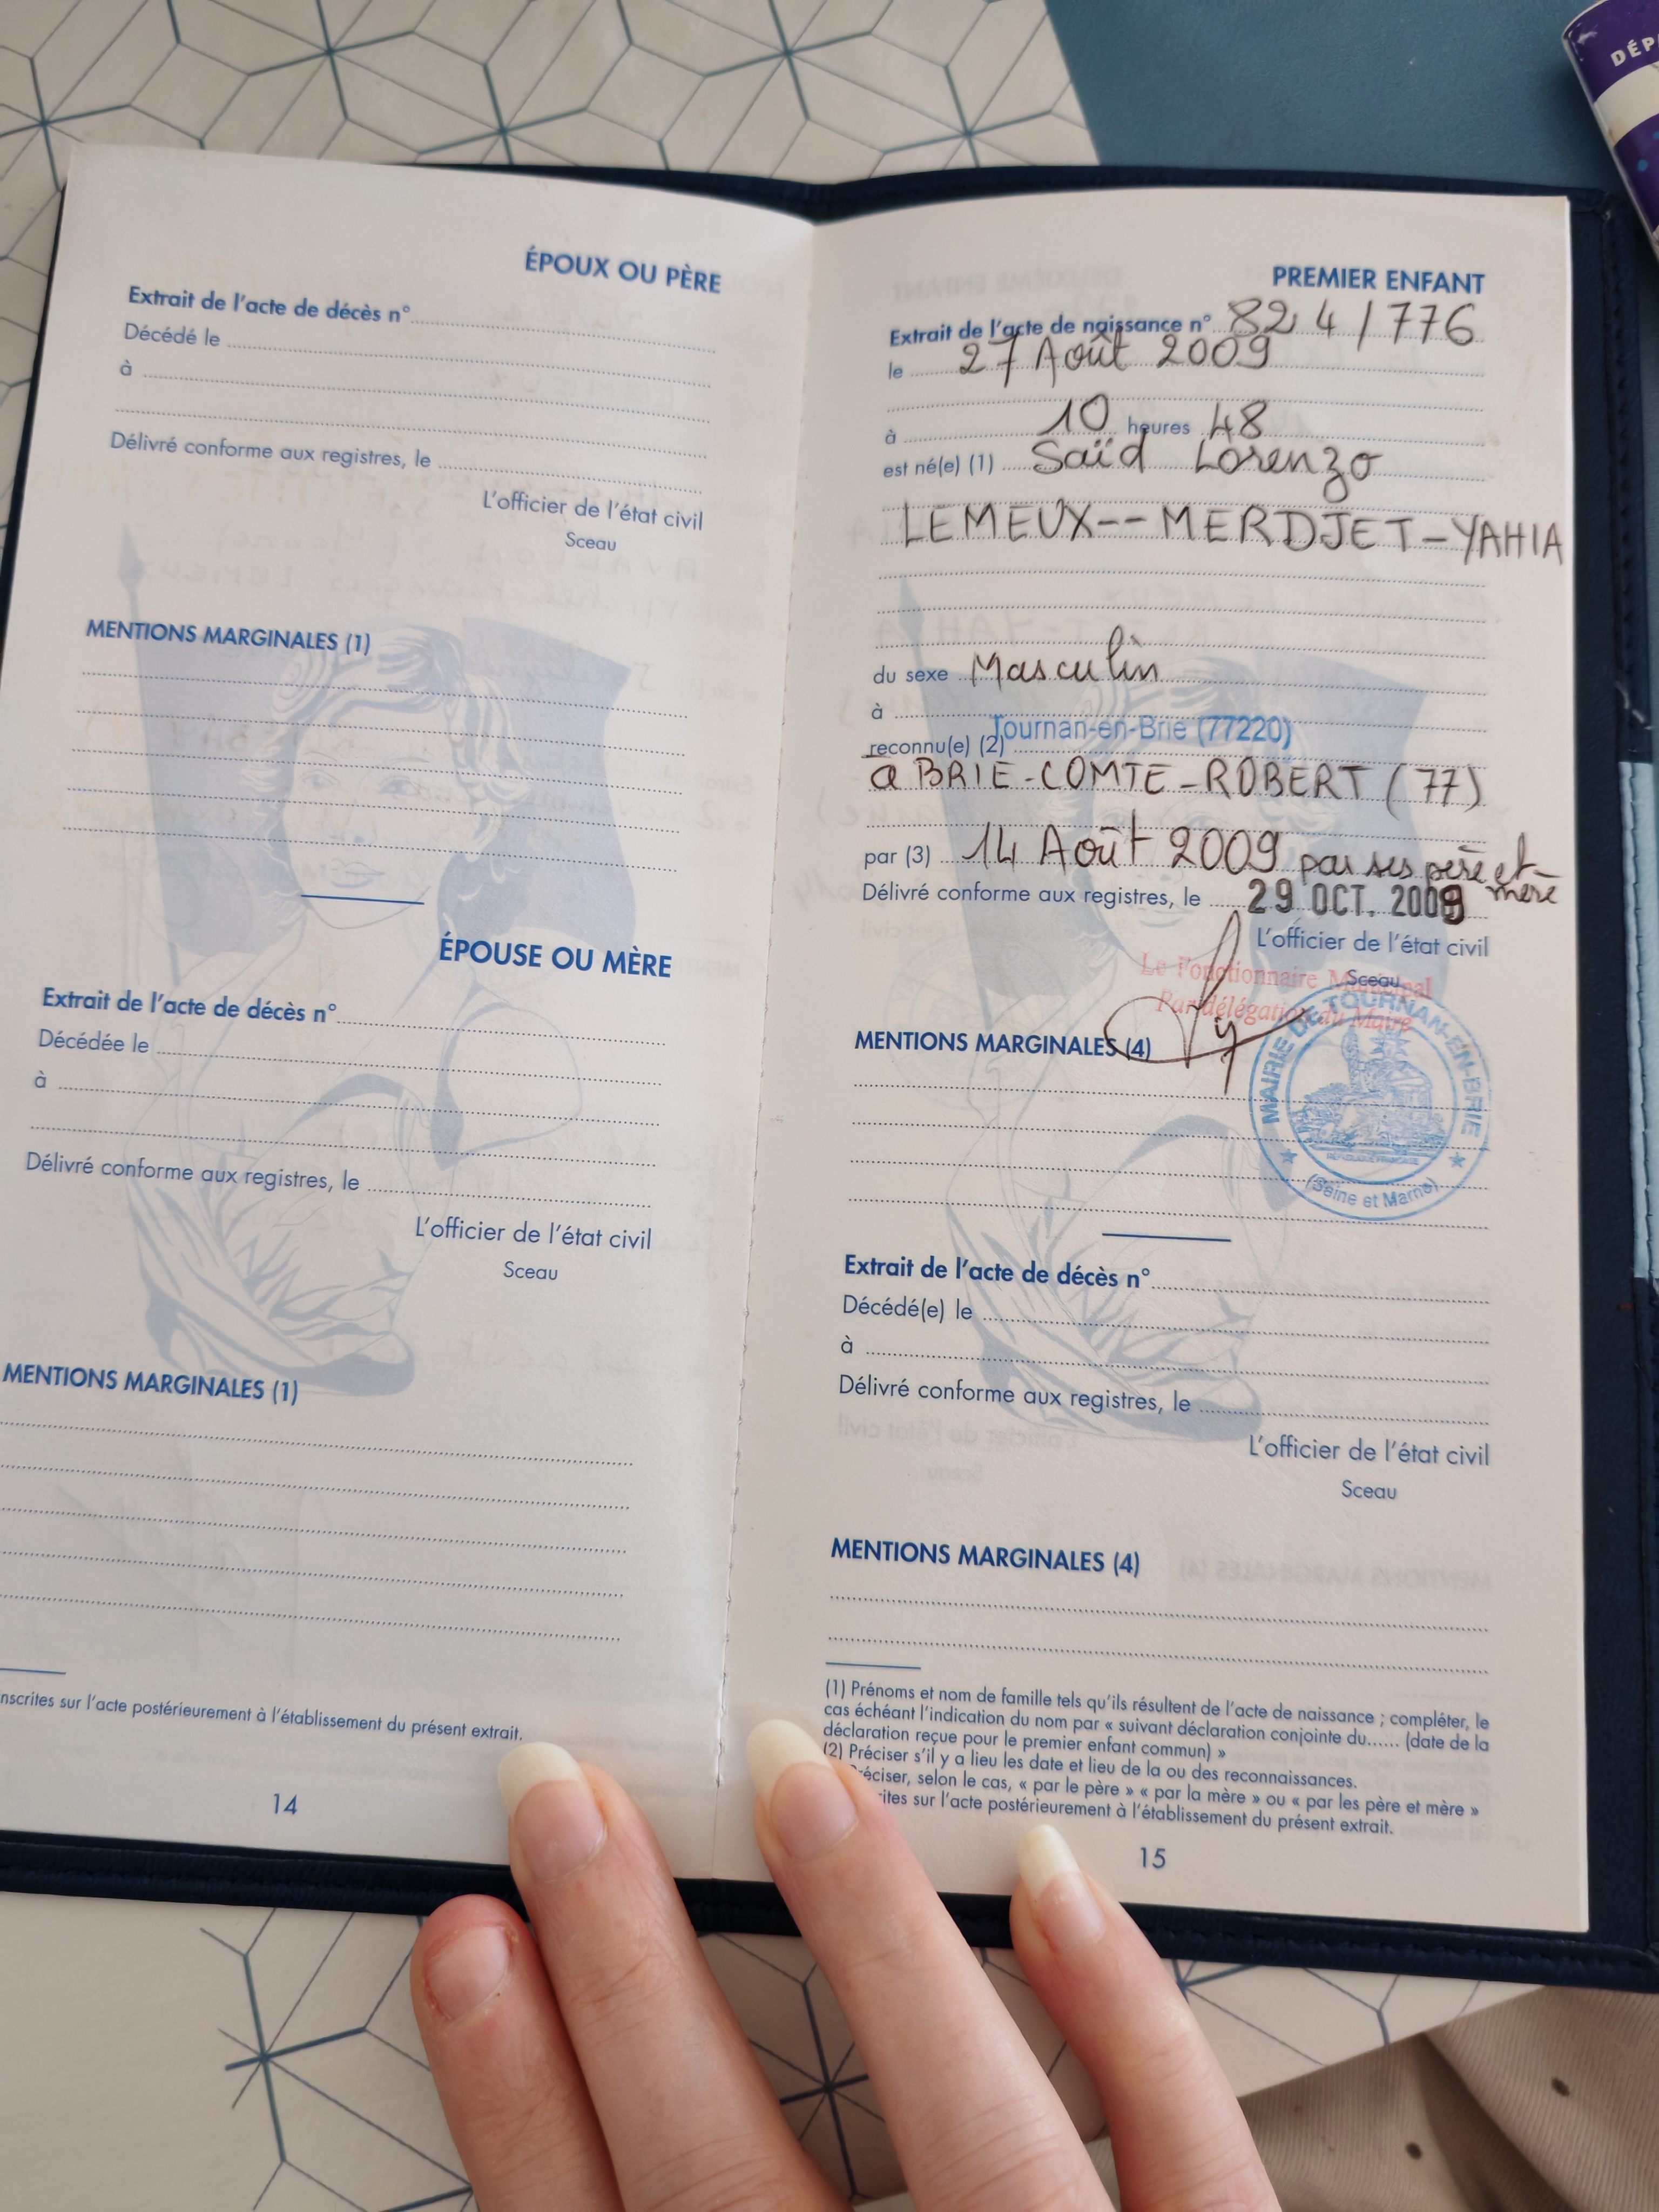 DÉP
ÉPOUX OU PÈRE
Extrait de l'acte de décès n°
Décédé le
à
Délivré conforme aux registres, le
L'officier de l'état civil
Sceau
MENTIONS MARGINALES (1)
ÉPOUSE OU MÈRE
Extrait de l'acte de décès n°
Décédée le
à
Délivré conforme aux registres, le
L'officier de l'état civil
Sceau
MENTIONS MARGINALES (1)
nscrites sur l'acte postérieurement à l'établissement du présent extrait.
14
PREMIER ENFANT
Extrait de l'acte de naissance n° 824/776
le 27 Août 2009
à 10 heures 48
est né(e) (1) Saïd Lorenzo
LEMEUX--MERDJET-YAHIA
du sexe Masculin
à Tournan-en-Brie (77220)
reconnu(e) (2)
à BRIE-COMTE-ROBERT (77)
par (3) 14 Août 2009 par ses père et mère
Délivré conforme aux registres, le 29 OCT. 2009
L'officier de l'état civil
Sceau
Le Fonctionnaire Municipal
Par délégation du Maire
MAIRIE DE TOURNAN-EN-BRIE
RÉPUBLIQUE FRANÇAISE
(Seine et Marne)
MENTIONS MARGINALES (4)
Extrait de l'acte de décès n°
Décédé(e) le
à
Délivré conforme aux registres, le
L'officier de l'état civil
Sceau
MENTIONS MARGINALES (4)
(1) Prénoms et nom de famille tels qu'ils résultent de l'acte de naissance ; compléter, le
cas échéant l'indication du nom par « suivant déclaration conjointe du...... (date de la
déclaration reçue pour le premier enfant commun) »
(2) Préciser s'il y a lieu les date et lieu de la ou des reconnaissances.
réciser, selon le cas, « par le père » « par la mère » ou « par les père et mère »
rites sur l'acte postérieurement à l'établissement du présent extrait.
15